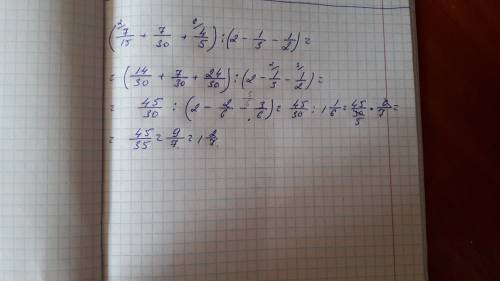 (²/7/15 + 7/30 + ⁶/4/5) : (2 - 1/3 - 1/2) =
= (14/30 + 7/30 + 24/30) : (2 - ²/1/3 - ³/1/2) =
= 45/30 : (2 - 2/6 - 3/6) = 45/30 : 1 1/6 = 45/30 5 · 6/7 =
= 45/35 = 9/7 = 1 2/7